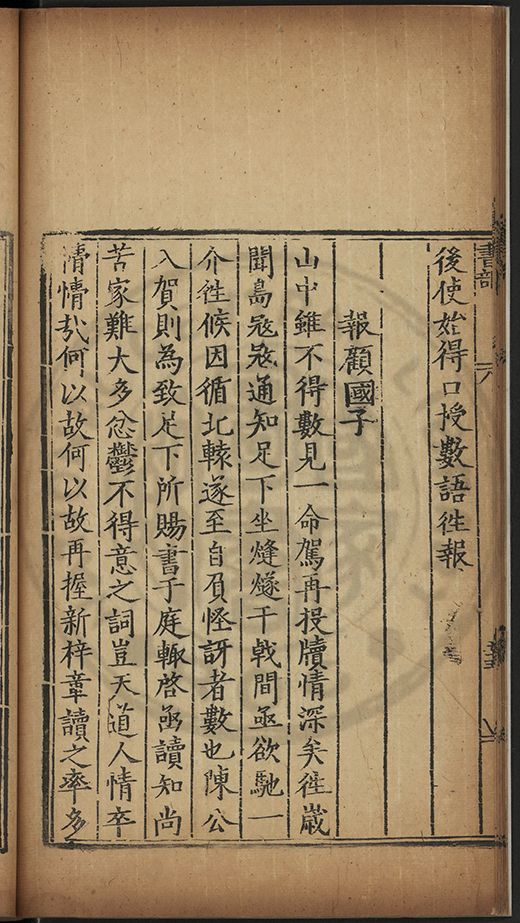 後使始得口授數語徃報
報顧國子
山中雖不得數見一命駕再投牘情深矣徃歲
聞島㓂㓂通知足下坐烽燧干戟間亟欲馳一
介徃候因循北轅遂至自負怪訝者數也陳公
入賀則為致足下所賜書于庭輙啓亟讀知尚
苦家難大多忿鬱不得意之詞豈天道人情卒
情情㢤何以故何以故再握新梓章讀之率多